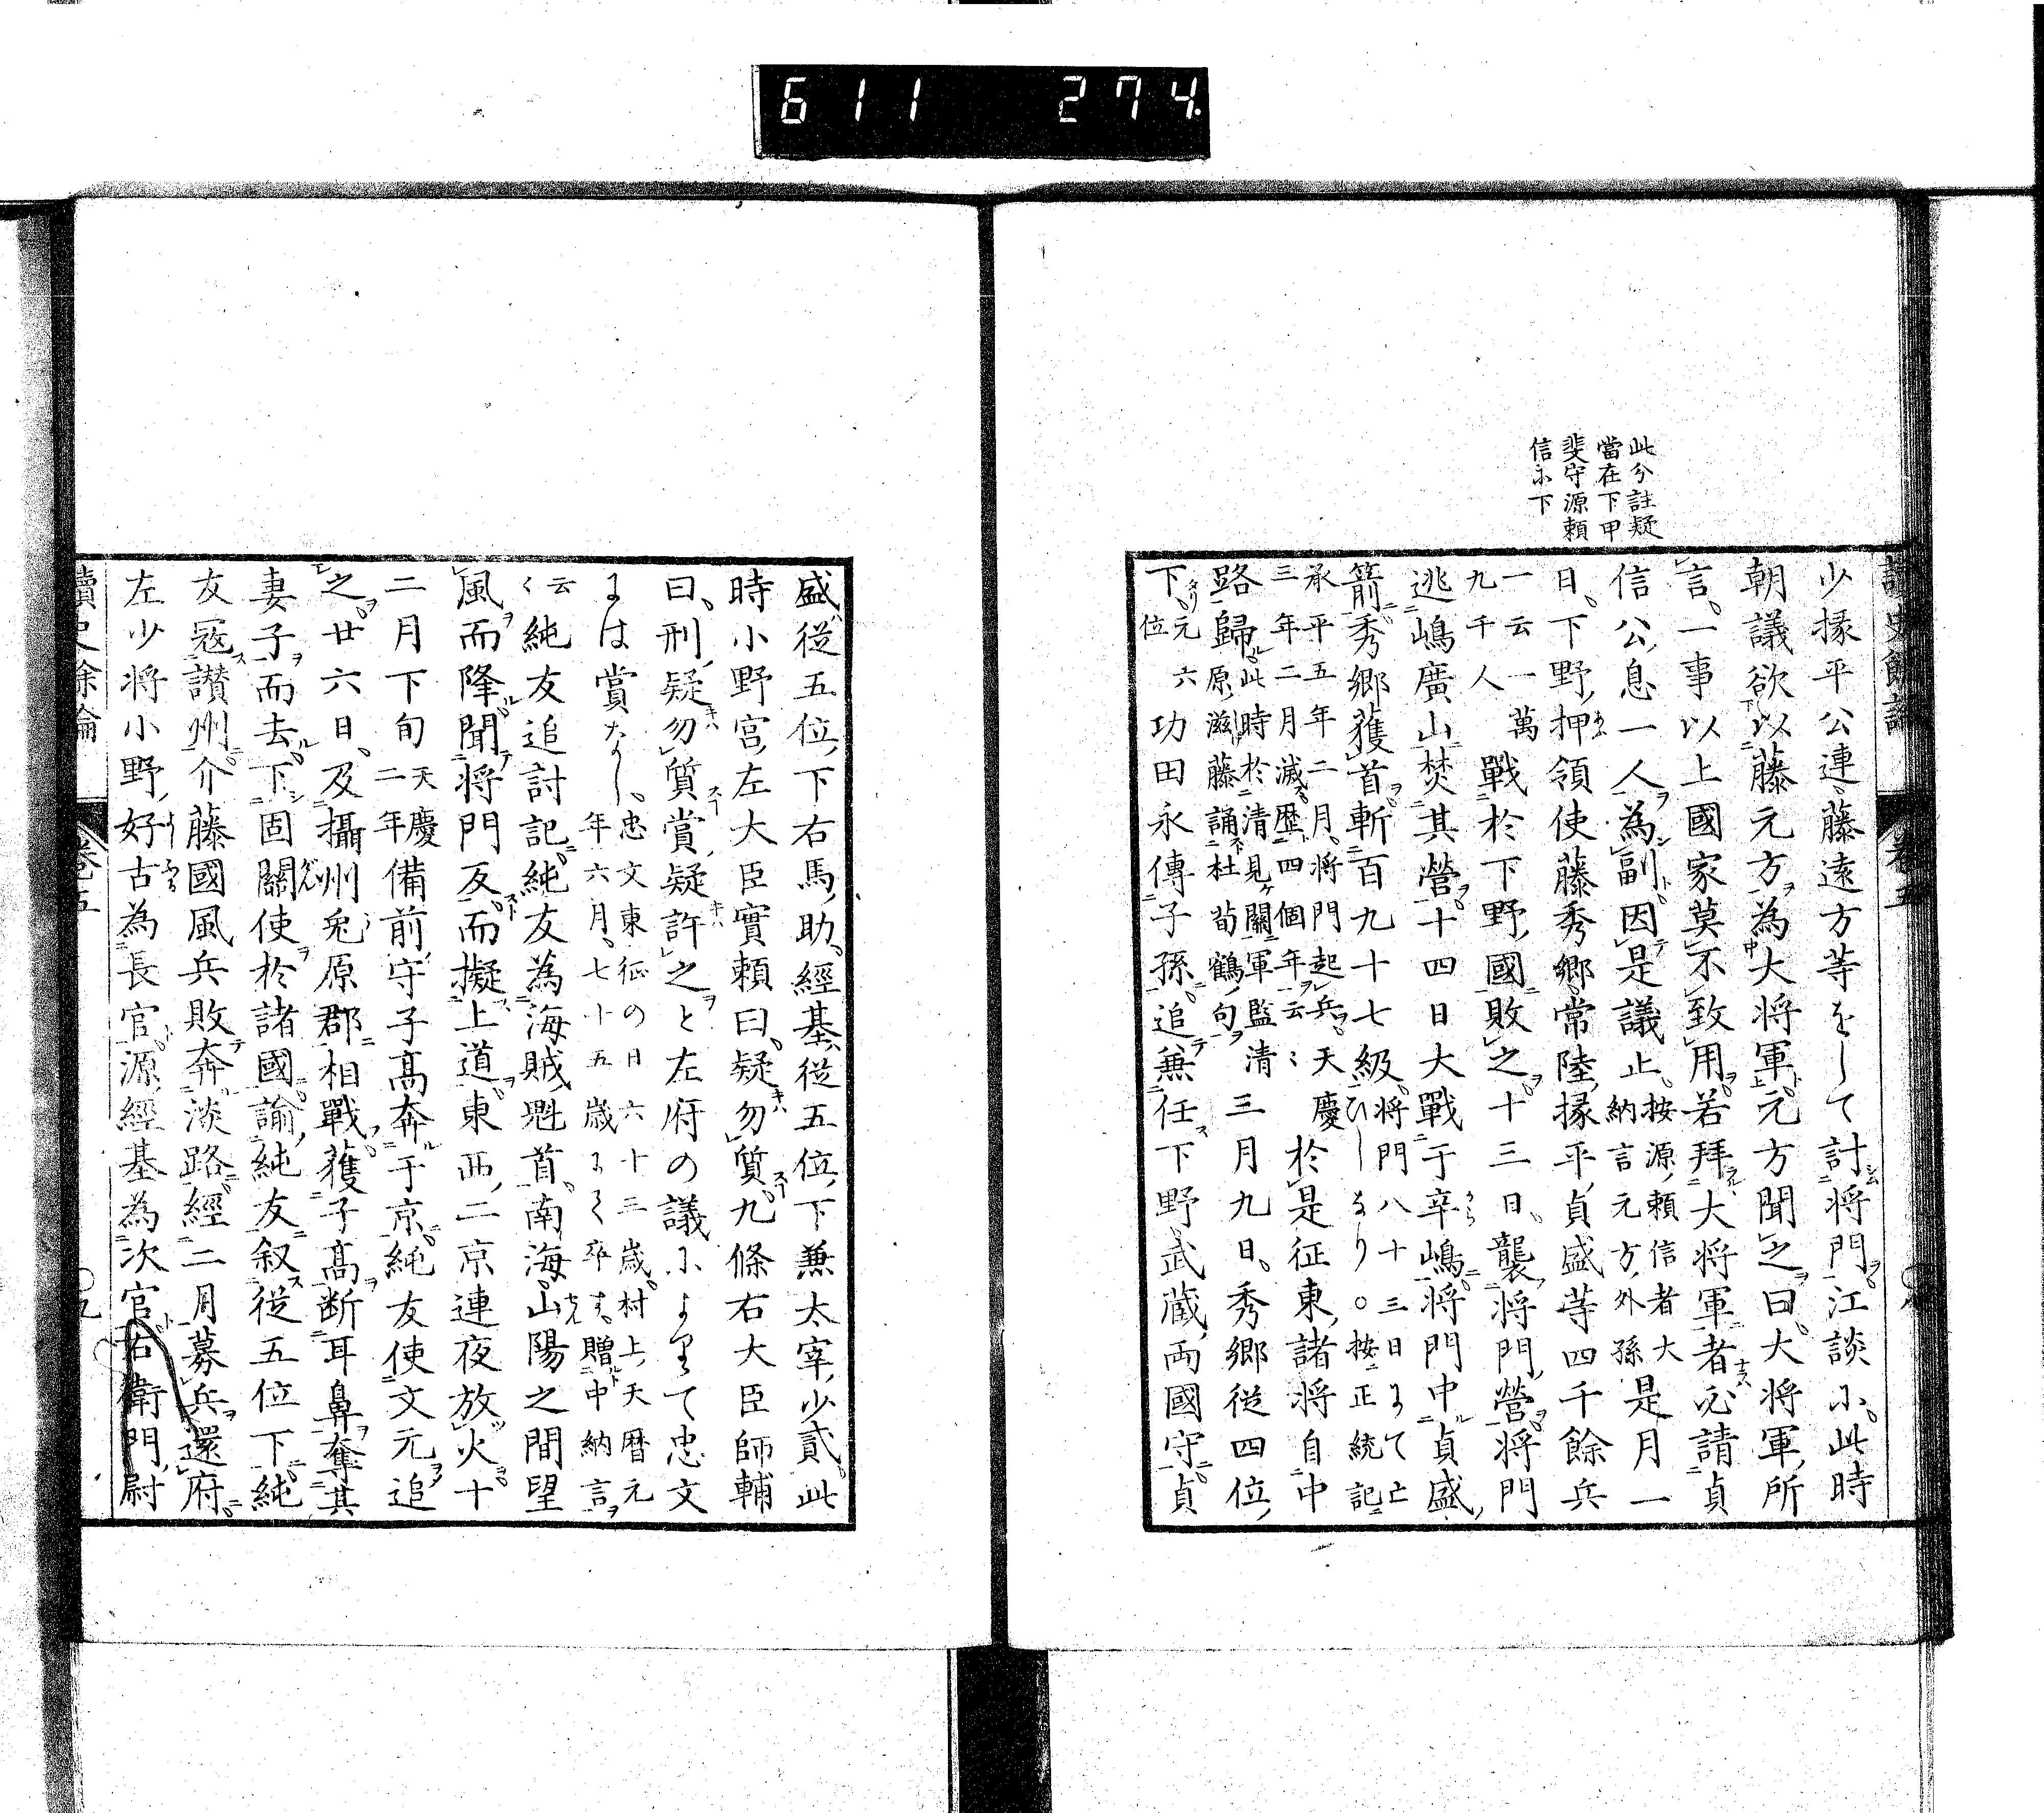 611 274
此分註疑
當在下甲
斐守源頼
信ニ下
讀史餘論 卷五 ○八
少掾平公連藤遠方等をして討將門江談ニ此時
朝議欲以藤元方為大将軍元方聞之曰大将軍所
言一事以上國家莫不致用若拜大将軍者必請貞
信公息一人為副因是議止按源頼信者大納言元方外孫是月一
日下野押領使藤秀郷常陸掾平貞盛等四千餘兵
一云一萬九千人戰於下野國敗之十三日襲将門營将門
逃嶋廣山焚其營十四日大戰于辛嶋将門中貞盛
箭秀郷獲首斬百九十七級将門八十三日にて亡ひしなり○按正統記
承平五年二月将門起兵天慶三年二月滅歷四個年云々於是征東諸将自中
路歸此時於清見關軍監清原滋藤誦杜荀鶴句三月九日秀郷従四位
下元六位功田永傳子孫追兼任下野武蔵両國守貞
盛従五位下右馬助經基従五位下兼太宰少貳此
時小野宮左大臣實頼曰疑勿質九條右大臣師輔
曰刑疑勿質賞疑許之と左府の議によりて忠文
には賞なし忠文東征の日六十三歳村上天暦元年六月七十五歳にて卒す贈中納言
云々純友追討記純友為海賊魁首南海山陽之間望
風而降聞将門反而擬上道東西二京連夜放火十
二月下旬天慶二年備前守子髙奔于京純友使文元追
之廿六日及攝州兎原郡相戰獲子髙断耳鼻奪其
妻子而去下固關使於諸國諭純友叙従五位下純
友寇讃州介藤國風兵敗奔淡路經二月募兵還府
左少将小野好古為長官源經基為次官右衛門尉
讀史餘論 卷五 ○九